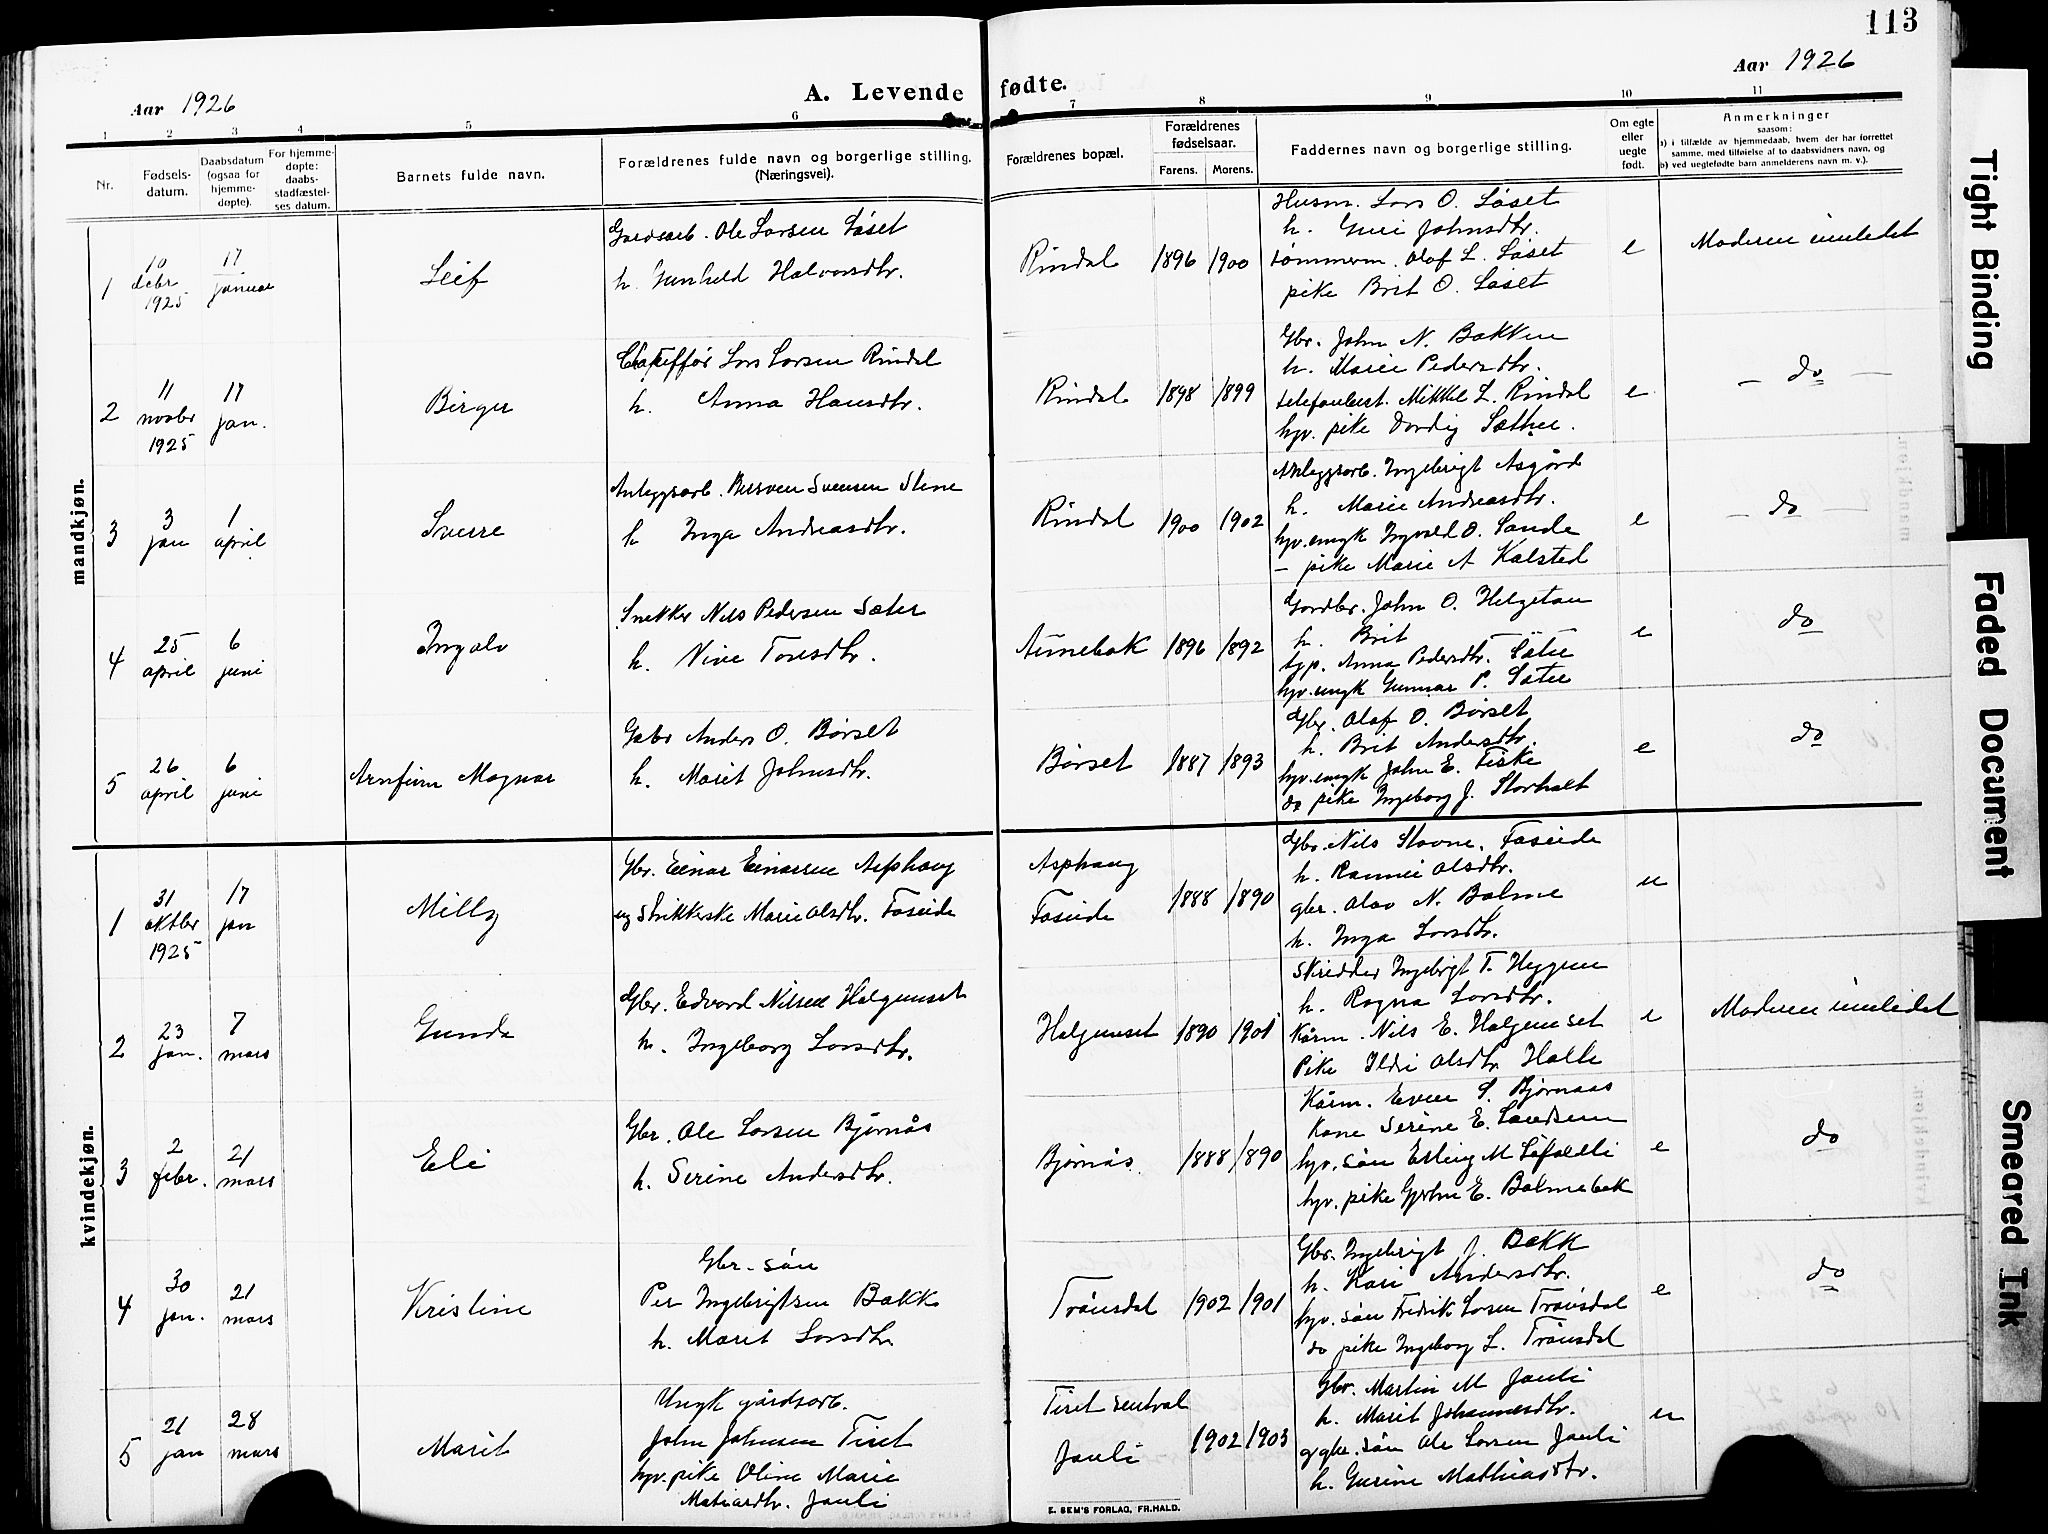 113
Aar 1926
A. Levende fødte.
Aar 1926
1 2 3 4 5 6 7 8 9 10 11
Nr.
Fødsels-
datum.
Daabsdatum
(ogsaa for
hjemme-
døpte).
For hjemme-
døpte:
daabs-
stadfæstel-
ses datum.
Barnets fulde navn.
Forældrenes fulde navn og borgerlige stilling.
(Næringsvei).
Forældrenes bopæl.
Forældrenes
fødselsaar.
Farens. Morens.
Faddernes navn og borgerlige stilling.
Om egte
eller
uegte
født.
Anmerkninger
saasom:
a) i tilfælde av hjemmedaab, hvem der har forrettet
samme, med tilføielse af to daabsvidners navn, og
b) ved uegtefødt barn anmelderens navn m. v.).
mandkjøn.
1
10
debr
1925
17
januar
Leif
Gaardsarb. Ole Larsen Løset
h. Gunhild Halvorsdtr.
Rindal
1896
1900
Husm. Lars O. Løset
h. Guri Johnsdtr.
tømmerm. Olaf L. Løset
pike Brit O. Løset
e
Moderen innledet
2
11
novbr
1925
17
jan.
Birger
Lars Larsen Rindal
h. Anna Hansdtr.
Rindal
1898
1899
Gbr. John N. Bakken
h. Marie Pedersdtr.
telefonbest. Mikkel L. Rindal
hjv. pike Dordig Sæther.
e
— do —
3
3
jan
1
april
Sverre
Anleggsarb. Bersven Svensen Stene
h Inga Andreasdtr.
Rindal
1900
1902
Anleggsarb. Ingebrigt Asgård
h. Marie Andreasdtr.
hjv. ungk Ingvald O. Sande
— pike Marie A Kalsted
e
— do —
4
25
april
6
juni
Ingolv
Snekker Nils Pedersen Sæter
h. Nive Toresdtr.
Aunebak
1896
1892
Gardbr. John O. Helgetun
h. Brit
Anna Pedersdtr. Sæter
hjv. ungk Gunnar P. Sæter
e
do
5
26
april
6
juni
Arnfinn Magnar
Gabr Anders O. Børset
h. Marit Johnsdtr.
Børset
1887
1893
Gbr. Olaf O. Børset
h. Brit Andersdtr.
hjv. ungk John E. Fiske
do pike Ingeborg J. Storholt
e
do
kvindekjøn.
1
31
oktbr
1925
17
jan
Milly
Gbr. Einar Einarsen Asphaug
og Strikkerske Marie Olsdtr. Faseide
Asphaug
Faseide
1888
1890
Gbr. Nils Stavne, Faseide
h. Rannei Olsdtr.
gbr. Olav N. Bolme
h. Inga Larsdtr.
u
2
23
jan.
7
mars
Gunda
Gbr. Edvard Nilsen Halgunset
h. Ingeborg Larsdtr.
Halgunset
1890
1901
Skredder Ingebrigt T. Heggem
h. Ragna Larsdtr.
Kårm. Nils E. Halgunset
Pike Ildri Olsdtr Halle
e
Moderen innledet
3
2
febr.
21
mars
Eli
Gbr. Ole Larsen Bjørnås
h. Serine Andersdtr.
Bjørnås
1888
1890
Kårm. Even S. Bjørnaas
Kone Serine E. Landsem
hjv. søn Erling M Løfaldli
hjv. pike Gjølin E. Bolmebak
e
do
4
30
jan.
21
mars
Kristine
Gbr. søn
Per Ingebrigtsen Bakk
h. Marit Larsdtr
Trønsdal
1902
1901
Gbr. Ingebrigt J. Bakk
h. Kari Andersdtr.
hjv. søn Fredrik Larsen Trønsdal
do pike Ingeborg L. Trønsdal
e
do
5
21
jan
28
mars
Marit
Ungk gårdsarb.
John Johnsen Tiset
hjv. pike Oline Marie
Matiasdtr. Jauli
Tiset sentral
Jauli
1902
1903
Gbr. Martin M Jauli
h. Marit Johannesdtr.
søn Ole Larsen Jauli
h. Gurine Mathiasdtr.
u
E. SEM'S FORLAG, FR.HALD.
Tight Binding
Faded Document
Smeared Ink